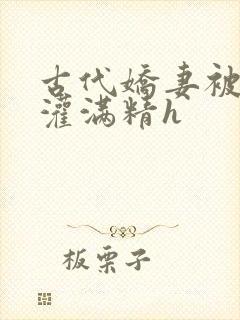 古代嬌妻被
灌滿精h
板栗子